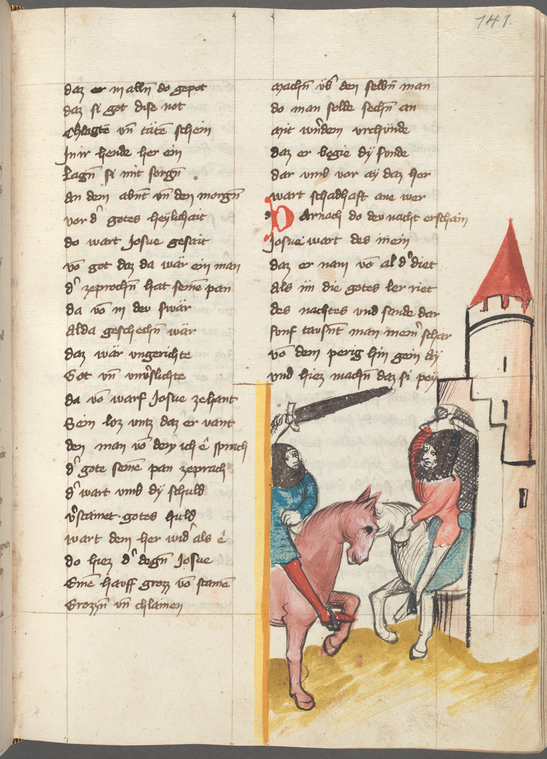 141.
daz er in alln do gepot
daz si got dise not
Chlagtē vn̄ tätē schein
In ir hende her ein
Lagn̄ si mit sorgn̄
an dem abnt vn̄ den morgn̄
vor d' gotes heylichait
do wart Josue gesait
vō got daz da wär ein man
d' zeprochn̄ hat seinē pan
da vō in der swär
Alda geschechn̄ wär
daz wär ungerichte
Got vn̄
da vō warf Josue zehant
Sein loz untz daz er vant
den man vō dem ich ē sprach
d' gotē seinē pan zeprach
d' wart vnd dÿ schuld
gotes huld
wart dem her wid' als ē
do hiez d' degn̄ Josue
Einē hauff grozz vō stainē
Grozzn̄ vn̄ chlainen
machn̄ üb' den selbn̄ man
do man solde sechn̄ an
mit urchünde
daz er begie dÿ sunde
dar vnd vor aÿ daz her
wart schadhaft ane wer
Darnach do der nacht erschain
Josue wart des mein
daz er nam vō al d' diet
als im die gotes ler riet
des nachtes vnd sande dar
funf tausnt man mein' schar
vō dem perig hin gein aÿ
vnd hiez machn̄ daz si peÿ